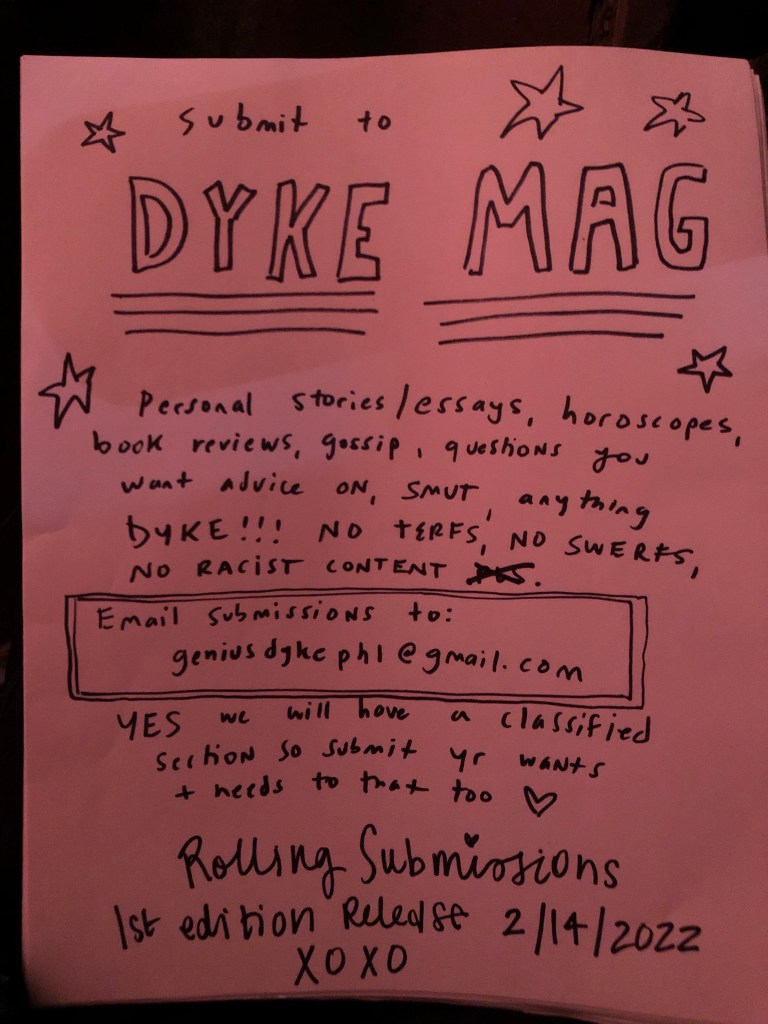 Submit to
DYKE MAG
Personal stories/essays, horoscopes,
book reviews, gossip, questions you
want advice on, SMUT, anything
DYKE!!! NO TERFS, NO SWERFS,
NO RACIST CONTENT .
Email submissions to:
geniusdykephl@gmail.com
YES we will have a classified
section so submit yr wants
+ needs to that too ♡
Rolling Submissions
1st edition Release 2/14/2022
XOXO